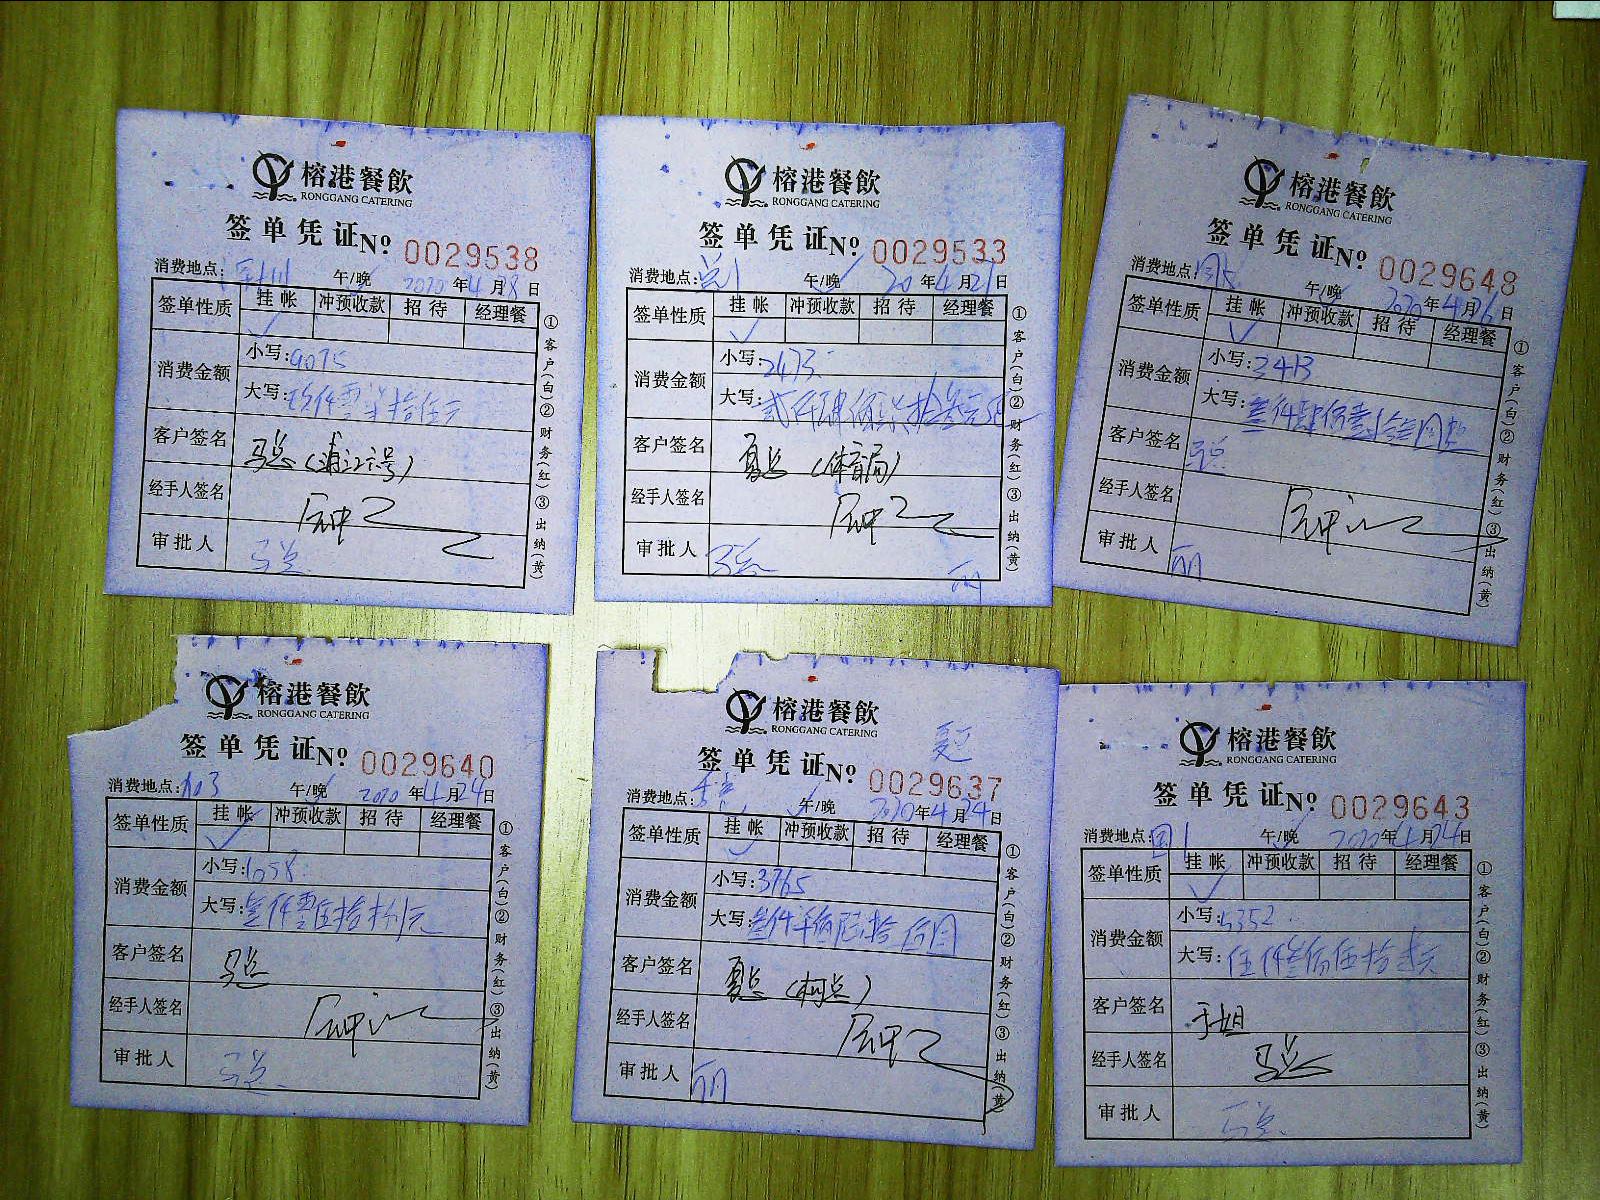 榕港餐飲
RONGGANG CATERING
签单凭证№ 0029538
消费地点: 午/晚 2020年4月8日
签单性质 挂帐 冲预收款 招待 经理餐
✓
消费金额 小写:9075
大写:玖仟零柒拾伍元
客户签名 马总(浦江六号)
经手人签名
审批人 马总
①客户(白)②财务(红)③出纳(黄)
榕港餐飲
RONGGANG CATERING
签单凭证№ 0029533
消费地点: 午/晚 20年4月21日
签单性质 挂帐 冲预收款 招待 经理餐
✓
消费金额 小写:2473
大写:贰仟肆佰柒拾叁元正
客户签名 夏总(体育局)
经手人签名
审批人 马总 丽
①客户(白)②财务(红)③出纳(黄)
榕港餐飲
RONGGANG CATERING
签单凭证№ 0029648
消费地点: 午/晚 2020年4月26日
签单性质 挂帐 冲预收款 招待 经理餐
✓
消费金额 小写:3413
大写:叁仟肆佰壹拾叁圆整
客户签名 马总
经手人签名
审批人 丽
①客户(白)②财务(红)③出纳(黄)
榕港餐飲
RONGGANG CATERING
签单凭证№ 0029640
消费地点: 午/晚 2020年4月24日
签单性质 挂帐 冲预收款 招待 经理餐
✓
消费金额 小写:
大写:仟零伍拾捌元
客户签名 马总
经手人签名
审批人 马总
①客户(白)②财务(红)③出纳(黄)
榕港餐飲
RONGGANG CATERING
签单凭证№ 0029637
消费地点: 午/晚 2020年4月24日
签单性质 挂帐 冲预收款 招待 经理餐
✓
消费金额 小写:3765
大写:叁仟柒佰陆拾伍圆
客户签名 夏总(柯总)
经手人签名
审批人 丽
①客户(白)②财务(红)③出纳(黄)
榕港餐飲
RONGGANG CATERING
签单凭证№ 0029643
消费地点:国1 午/晚 2020年4月24日
签单性质 挂帐 冲预收款 招待 经理餐
✓
消费金额 小写:5352
大写:伍仟叁佰伍拾贰元
客户签名 于姐
经手人签名 马总
审批人 马总
①客户(白)②财务(红)③出纳(黄)